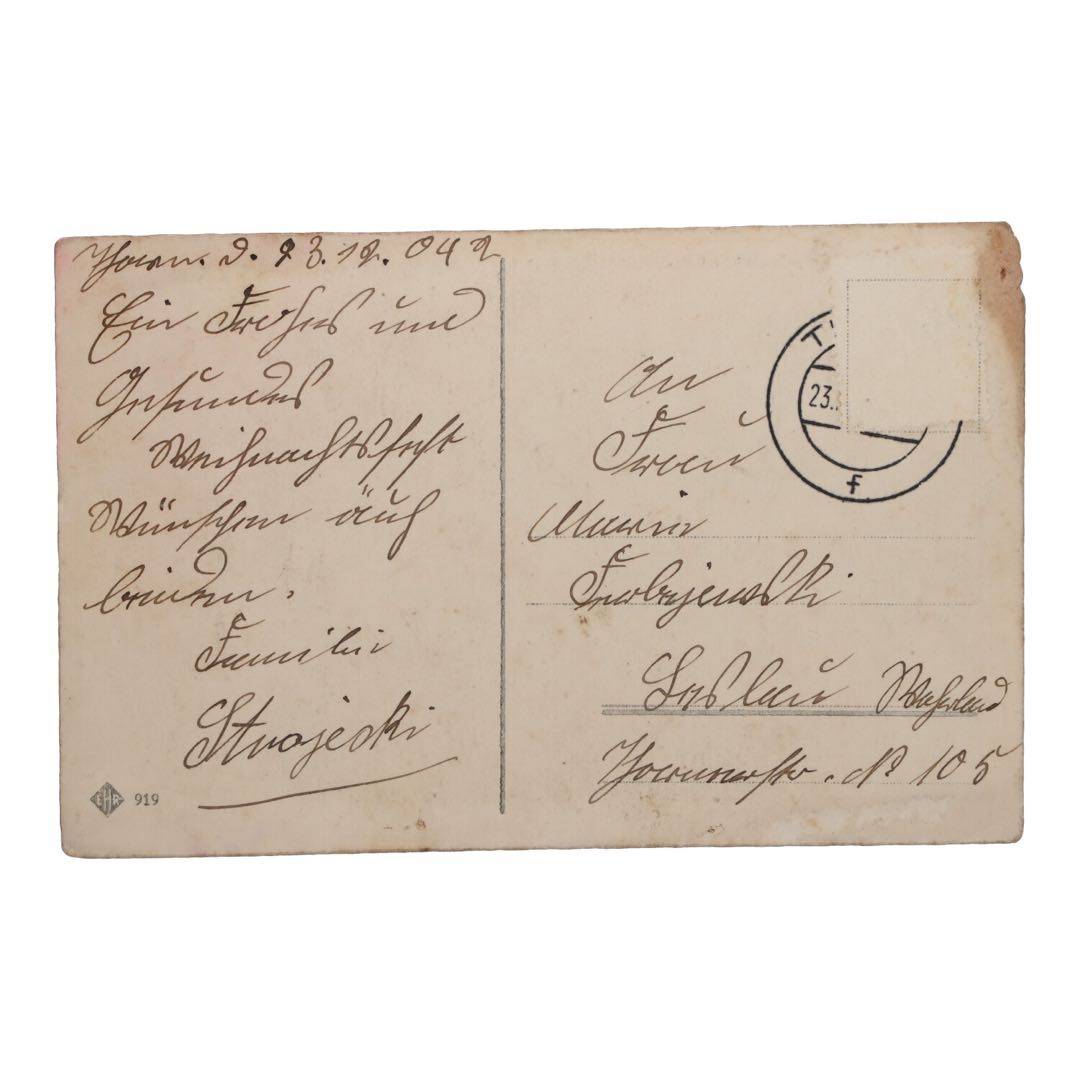 Thorn. d. 23.12.042
Ein Frohes und
Gesundes
Weihnachtsfest
Wünschen äuch
beiden.
Familie
Strojecki
EHR 919
T
23.
f
An
Fraŭ
Marie
Leslaŭ Wahrland
Thornerstr. № 105